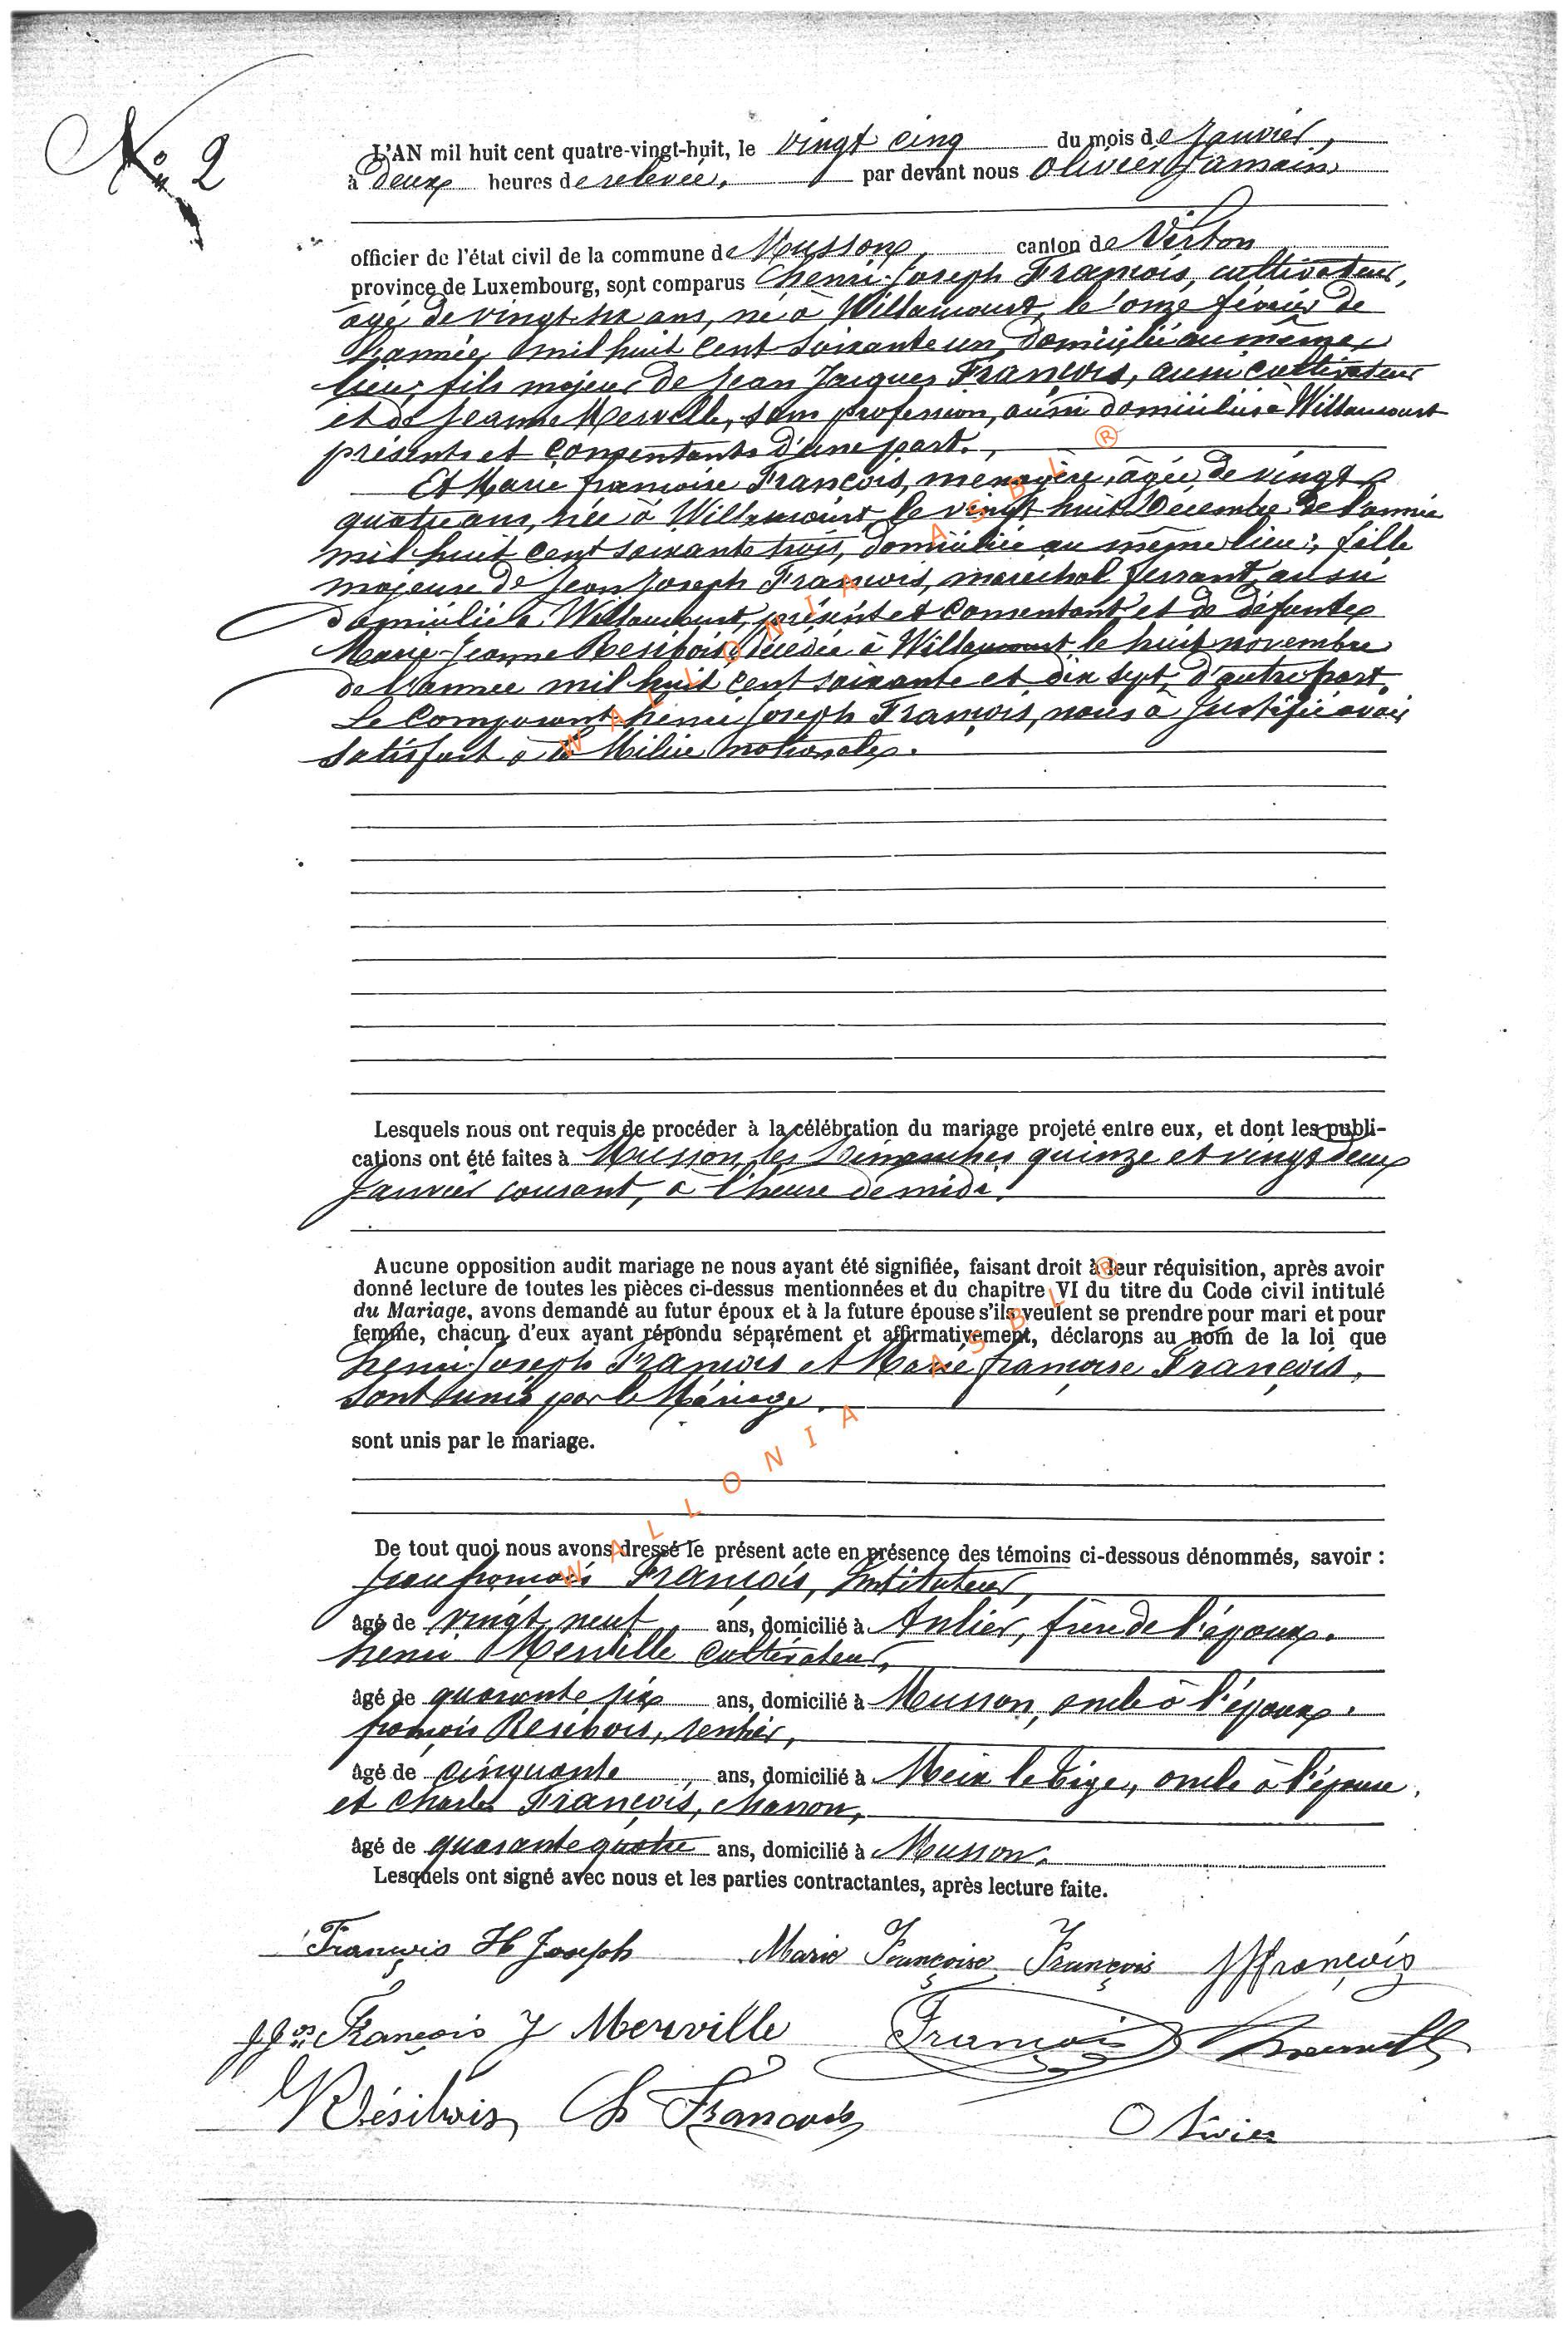 N° 2
L'AN mil huit cent quatre-vingt-huit, le vingt cinq du mois de Janvier,
à Deux heures de relevée, par devant nous Olivier Jamain
officier de l'état civil de la commune de Musson, canton de Virton
province de Luxembourg, sont comparus henri-Joseph François, cultivateur,
âgé de vingt six ans, né à Willancourt, le onze février de
l'année mil huit cent soixante un, domicilié au même
lieu, fils majeur de Jean Jacques François, aussi cultivateur
et de Jeanne Merville, sans profession, aussi domiciliés à Willancourt
présents et consentants d'une part.,
Et Marie françoise François, ménagère, âgée de vingt
quatre ans, née à Willancourt le vingt huit Décembre de l'année
mil huit cent soixante trois, domiciliée au même lieu, fille
majeure de Jean Joseph François, maréchal ferrant, aussi
domicilié à Willancourt, présent et consentant et de défunte
Marie-Jeanne Resibois, décédée à Willancourt le huit novembre
de l'année mil huit cent soixante et dix sept, d'autre part.
Le Comparant henri Joseph François, nous a justifié avoir
satisfait à la Milice nationale.
Lesquels nous ont requis de procéder à la célébration du mariage projeté entre eux, et dont les publi-
cations ont été faites à Musson, les Dimanches quinze et vingt deux
Janvier courant, à l'heure de midi.
Aucune opposition audit mariage ne nous ayant été signifiée, faisant droit à leur réquisition, après avoir
donné lecture de toutes les pièces ci-dessus mentionnées et du chapitre VI du titre du Code civil intitulé
du Mariage, avons demandé au futur époux et à la future épouse s'ils veulent se prendre pour mari et pour
femme, chacun d'eux ayant répondu séparément et affirmativement, déclarons au nom de la loi que
henri-Joseph François et Marie françoise François,
sont unis par le Mariage.
sont unis par le mariage.
De tout quoi nous avons dressé le présent acte en présence des témoins ci-dessous dénommés, savoir :
Jean françois François, Instituteur,
âgé de vingt neuf ans, domicilié à Anlier, frère de l'époux.
henri Merville cultivateur,
âgé de quarante six ans, domicilié à Musson, oncle à l'époux.
françois Resibois, rentier,
âgé de cinquante ans, domicilié à Meix le Tige, oncle à l'épouse,
et Charles François, charron,
âgé de quarante quatre ans, domicilié à Musson.
Lesquels ont signé avec nous et les parties contractantes, après lecture faite.
François H Joseph Marie Françoise François JJ françois
François J Merville François
Résibois Ch François Olivier
WALLONIA ASBL ®
WALLONIA ASBL ®